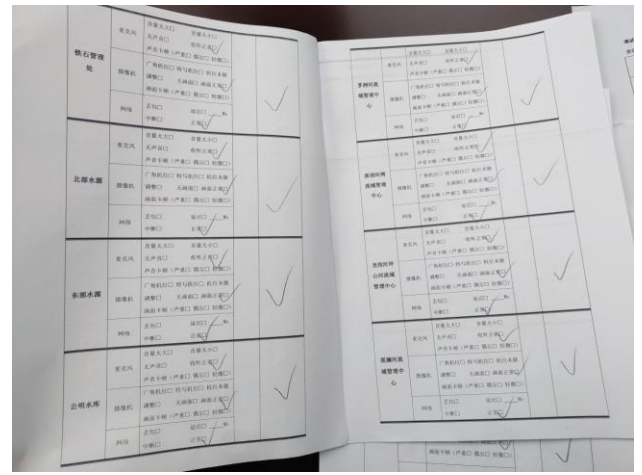 铁石管理处
麦克风
音量太大□ 音量太小□
无声音□ 收听正常□
声音卡顿(严重□ 偶尔□ 轻微□)
摄像机
广角机位□ 特写机位□ 机位未做
调整□ 无画面□ 画面正常□
画面卡顿(严重□ 偶尔□ 轻微□)
网络
丢包□ 延迟□ Ms
中断□ 正常□
北部水源
麦克风
音量太大□ 音量太小□
无声音□ 收听正常□
声音卡顿(严重□ 偶尔□ 轻微□)
摄像机
广角机位□ 特写机位□ 机位未做
调整□ 无画面□ 画面正常□
画面卡顿(严重□ 偶尔□ 轻微□)
网络
丢包□ 延迟□ Ms
中断□ 正常□
东部水源
麦克风
音量太大□ 音量太小□
无声音□ 收听正常□
声音卡顿(严重□ 偶尔□ 轻微□)
摄像机
广角机位□ 特写机位□ 机位未做
调整□ 无画面□ 画面正常□
画面卡顿(严重□ 偶尔□ 轻微□)
网络
丢包□ 延迟□ Ms
中断□ 正常□
公明水库
麦克风
音量太大□ 音量太小□
无声音□ 收听正常□
声音卡顿(严重□ 偶尔□ 轻微□)
摄像机
广角机位□ 特写机位□ 机位未做
调整□ 无画面□ 画面正常□
画面卡顿(严重□ 偶尔□ 轻微□)
网络
丢包□ 延迟□ Ms
中断□ 正常□
茅洲河流域管理中心
麦克风
音量太大□ 音量太小□
无声音□ 收听正常□
声音卡顿(严重□ 偶尔□ 轻微□)
摄像机
广角机位□ 特写机位□ 机位未做
调整□ 无画面□ 画面正常□
画面卡顿(严重□ 偶尔□ 轻微□)
网络
丢包□ 延迟□ Ms
中断□ 正常□
深圳河湾流域管理中心
麦克风
音量太大□ 音量太小□
无声音□ 收听正常□
声音卡顿(严重□ 偶尔□ 轻微□)
摄像机
广角机位□ 特写机位□ 机位未做
调整□ 无画面□ 画面正常□
画面卡顿(严重□ 偶尔□ 轻微□)
网络
丢包□ 延迟□ Ms
中断□ 正常□
龙岗河坪山河流域管理中心
麦克风
音量太大□ 音量太小□
无声音□ 收听正常□
声音卡顿(严重□ 偶尔□ 轻微□)
摄像机
广角机位□ 特写机位□ 机位未做
调整□ 无画面□ 画面正常□
画面卡顿(严重□ 偶尔□ 轻微□)
网络
丢包□ 延迟□ Ms
中断□ 正常□
观澜河流域管理中心
麦克风
音量太大□ 音量太小□
无声音□ 收听正常□
声音卡顿(严重□ 偶尔□ 轻微□)
摄像机
广角机位□ 特写机位□ 机位未做
调整□ 无画面□ 画面正常□
画面卡顿(严重□ 偶尔□ 轻微□)
网络
丢包□ 延迟□ Ms
中断□ 正常□